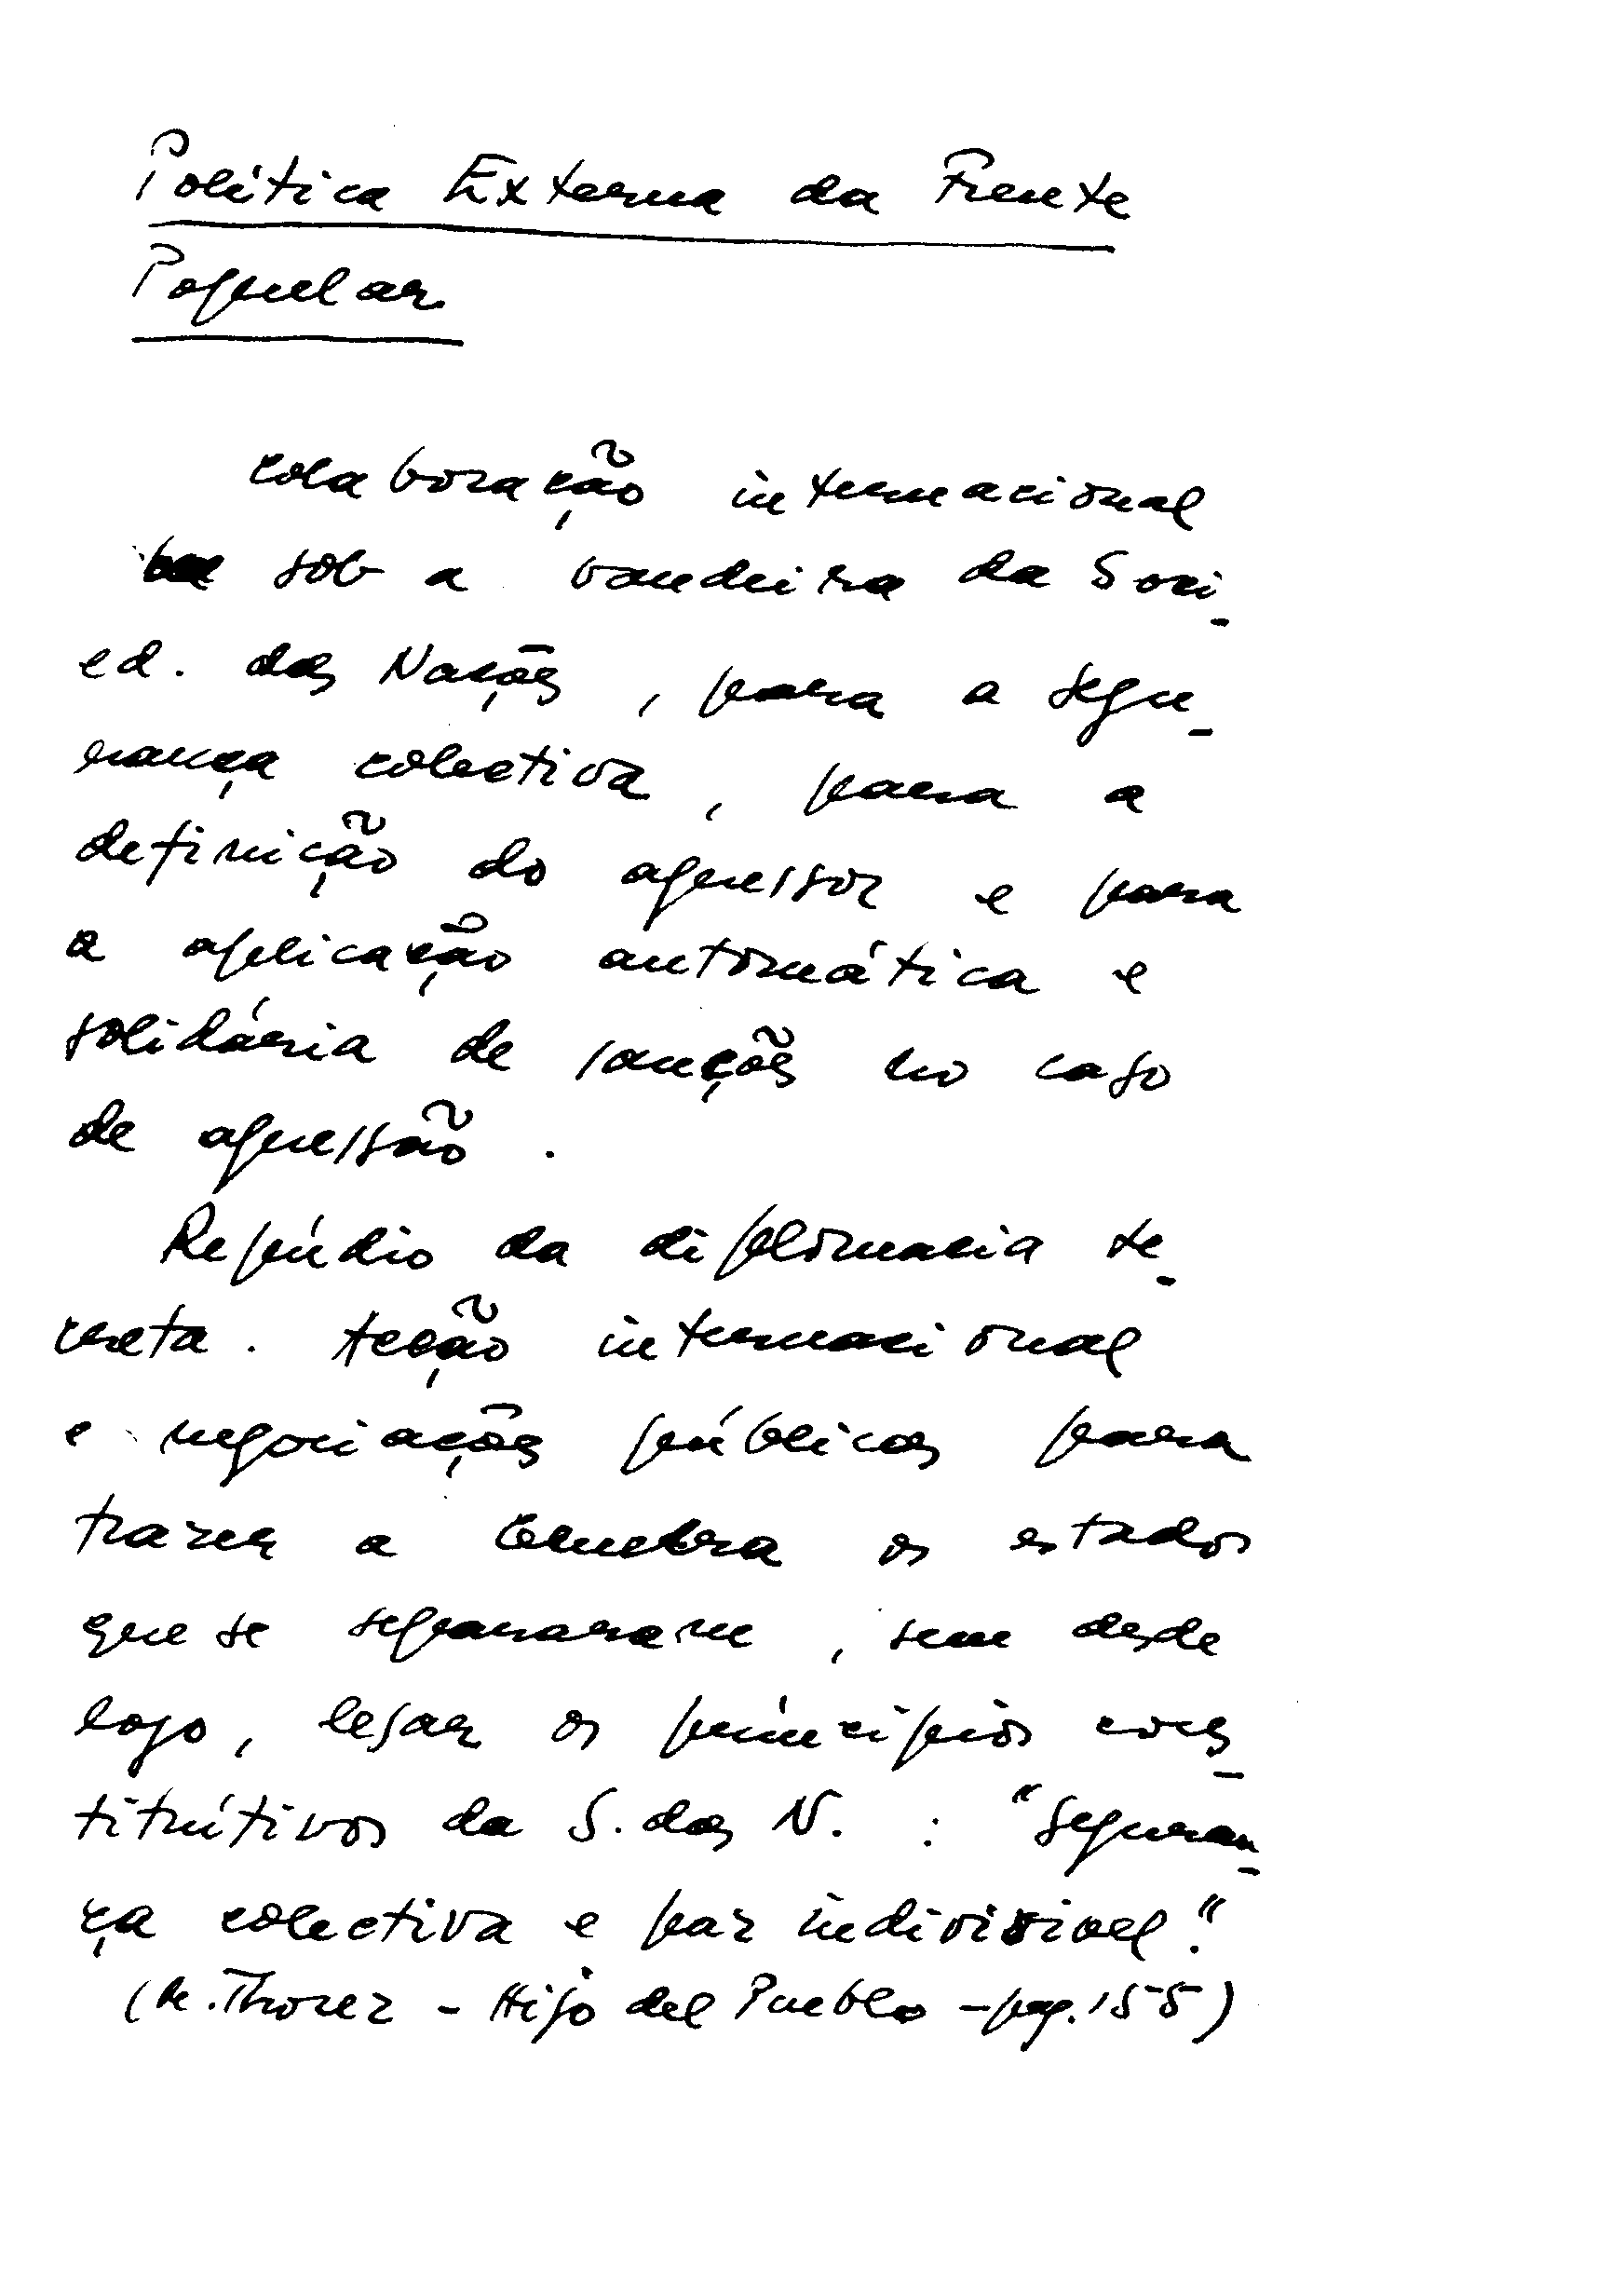 Política Externa da Frente
Popular
colaboração internacional
sob a bandeira da Soci-
ed. das Nações, para a segu-
rança colectiva, para a
definição do agressor e para
a aplicação automática e
solidária de sanções no caso
de agressão.
Repúdio da diplomacia se-
creta. Acção internacional
e negociações públicas para
trazer a Genebra os estados
que se separaram, sem desde
logo, lesar os princípios cons-
titutivos da S. das N. : "seguran-
ça colectiva e paz indivisivel."
(M. Thorez - Hijo del Pueblo - pag. 155)